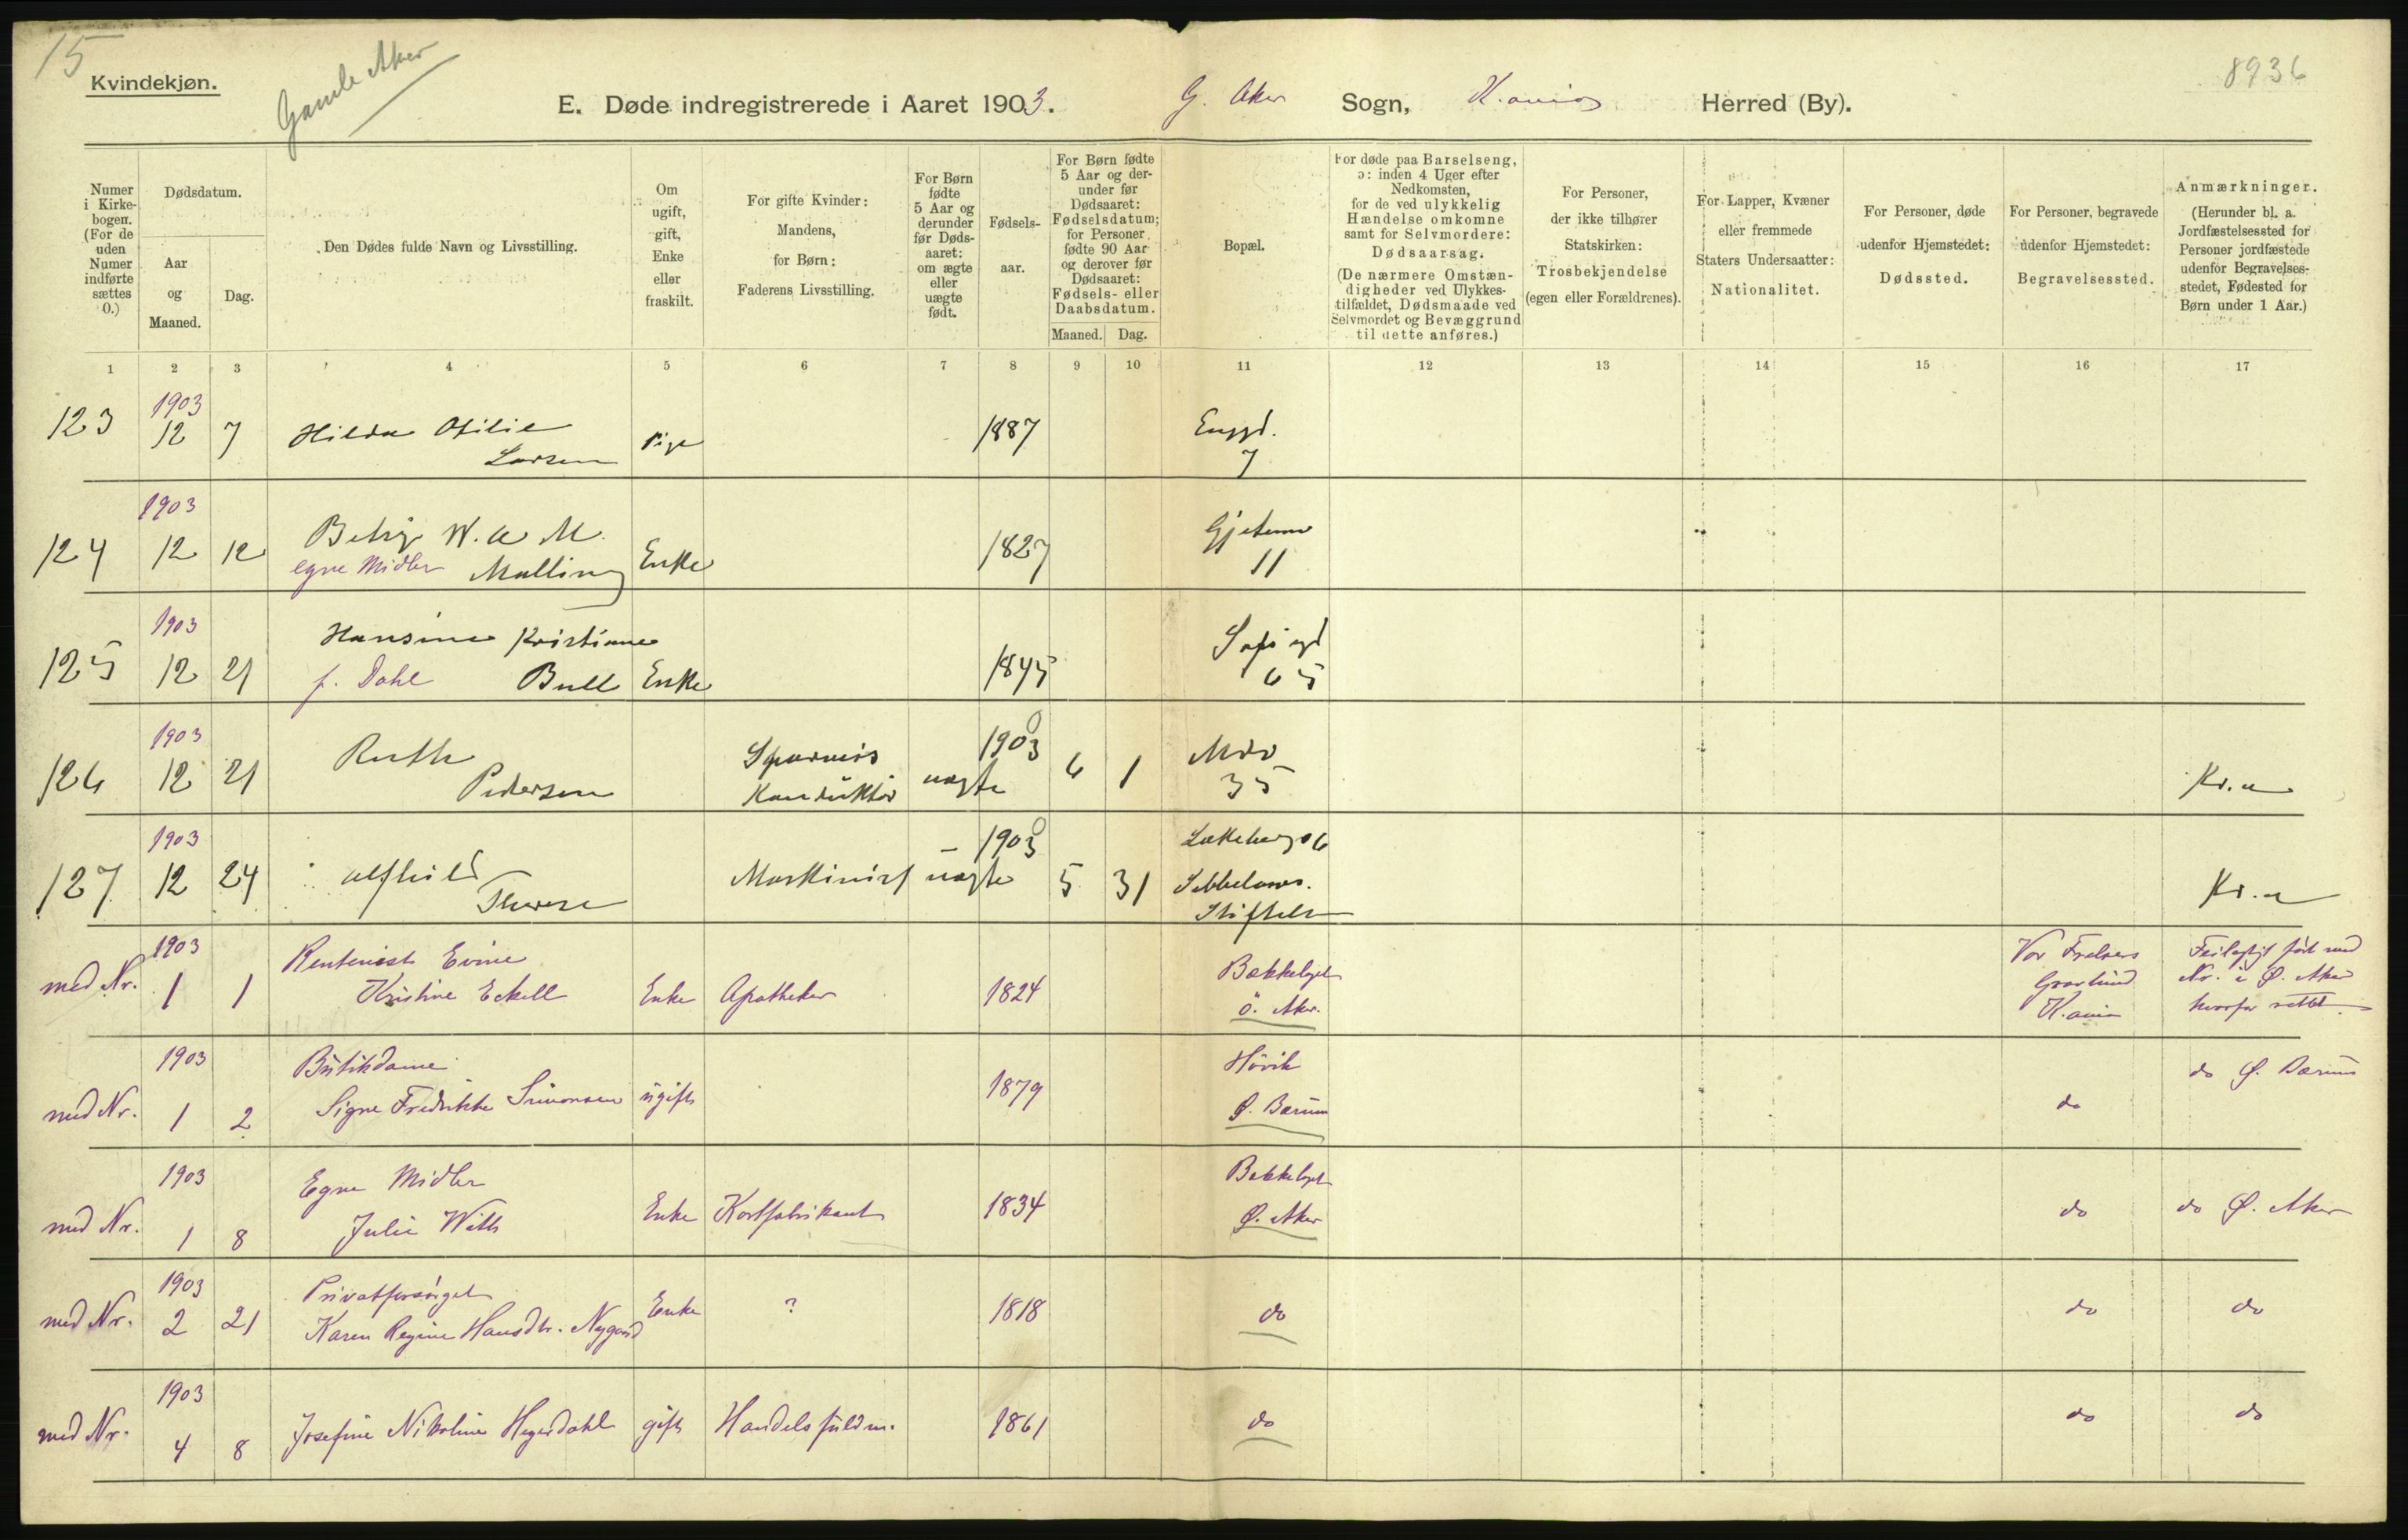 15
Kvindekjøn.
Gamle Aker
E. Døde indregistrerede i Aaret 1903. G. Aker Sogn, K.ania Herred (By).
8936
Numer i Kirkebogen. (For de uden Numer indførte sættes 0.)
Dødsdatum.
Aar og Maaned.
Dag.
Den Dødes fulde Navn og Livsstilling.
Om ugift, gift, Enke eller fraskilt.
For gifte Kvinder: Mandens, for Børn: Faderens Livsstilling.
For Børn fødte 5 Aar og derunder før Dødsaaret: om ægte eller uægte født.
Fødselsaar.
For Børn fødte 5 Aar og derunder før Dødsaaret: Fødselsdatum; for Personer fødte 90 Aar og derover før Dødsaaret: Fødsels- eller Daabsdatum.
Maaned. Dag.
Bopæl.
For døde paa Barselseng, ɔ: inden 4 Uger efter Nedkomsten, for de ved ulykkelig Hændelse omkomne samt for Selvmordere: Dødsaarsag. (De nærmere Omstændigheder ved Ulykkestilfældet, Dødsmaade ved Selvmordet og Bevæggrund til dette anføres.)
For Personer, der ikke tilhører Statskirken: Trosbekjendelse (egen eller Forældrenes).
For Lapper, Kvæner eller fremmede Staters Undersaatter: Nationalitet.
For Personer, døde udenfor Hjemstedet: Dødssted.
For Personer, begravede udenfor Hjemstedet: Begravelsessted.
Anmærkninger. (Herunder bl. a. Jordfæstelsessted for Personer jordfæstede udenfor Begravelsesstedet, Fødested for Børn under 1 Aar.)
1 2 3 4 5 6 7 8 9 10 11 12 13 14 15 16 17
1903
123 12 7 Hilda Otilie Larsen Pige 1887 Enggd. 7
1903
124 12 12 Betzy W. A M. Malling Enke 1827 11
egne Midler
1903
125 12 21 Hansine Kristiane Bull Enke 1845 Sofi gd 65
f. Dahl
1903
126 12 21 Ruth Pedersen Sporveis Konduktør uægte 1903 6 1 35 Kr.a
1903
127 12 24 Alfhild Therese Maskinist uægte 1903 5 31 Stiftels Kr.a
1903
med Nr. 1 1 Rentenist Evine Kristine Eckell Enke Apotheker 1824 Bækkelaget Ö. Aker. Vor Frelsers Gravlund K.ania Feilagtigt ført med Nr. i Ø. Aker hvorfor rettet
1903
med Nr. 1 2 Butikdame Signe Fredrikke Simonsen ugift 1879 Hövik Ø. Bærum do do Ø. Bærum
1903
med Nr. 1 8 Egne Midler Julie With Enke Kortfabrikant 1834 Bekkelaget Ø. Aker do do Ø. Aker
1903
med Nr. 2 21 Privatforsörget Karen Regine Hansdtr. Nygaard Enke ? 1818 do do do
1903
med Nr. 4 8 Josefine Nikoline Heyerdahl gift Handelsfuldm. 1861 do do do